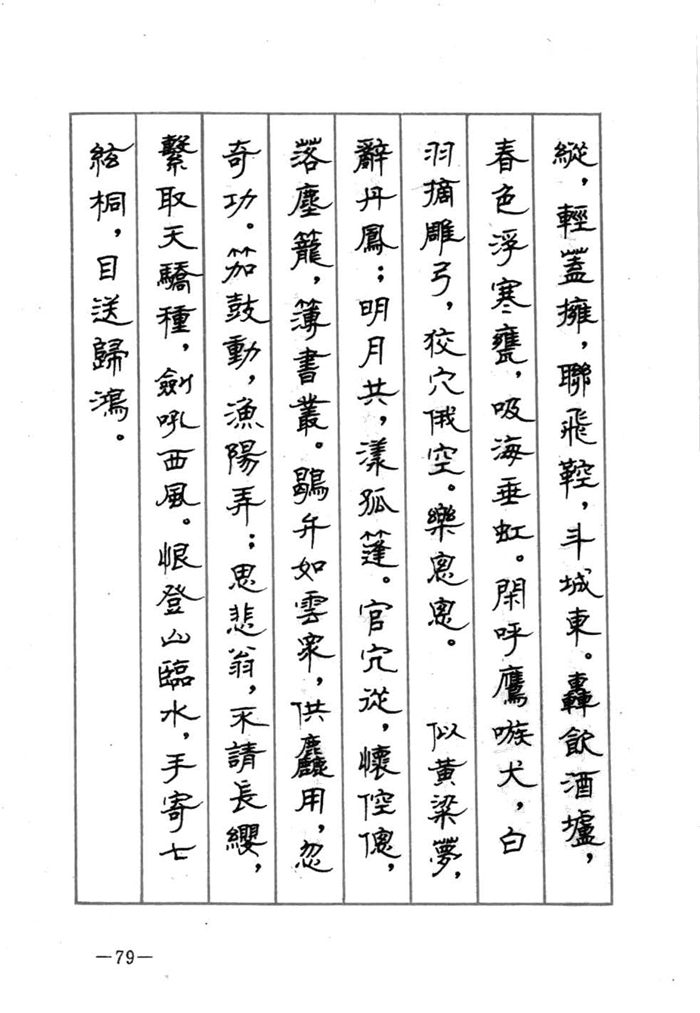 縱，輕蓋擁，聯飛鞚，斗城東。轟飲酒壚，
春色浮寒甕，吸海垂虹。閑呼鷹嗾犬，白
羽摘雕弓，狡穴俄空。樂悤悤。　似黃粱夢，
辭丹鳳；明月共，漾孤篷。官冗從，懷倥傯，
落塵籠，簿書叢。鶡弁如雲眾，供麤用，忽
奇功。笳鼓動，漁陽弄；思悲翁，不請長纓，
繫取天驕種，劍吼西風。恨登山臨水，手寄七
絃桐，目送歸鴻。
—79—